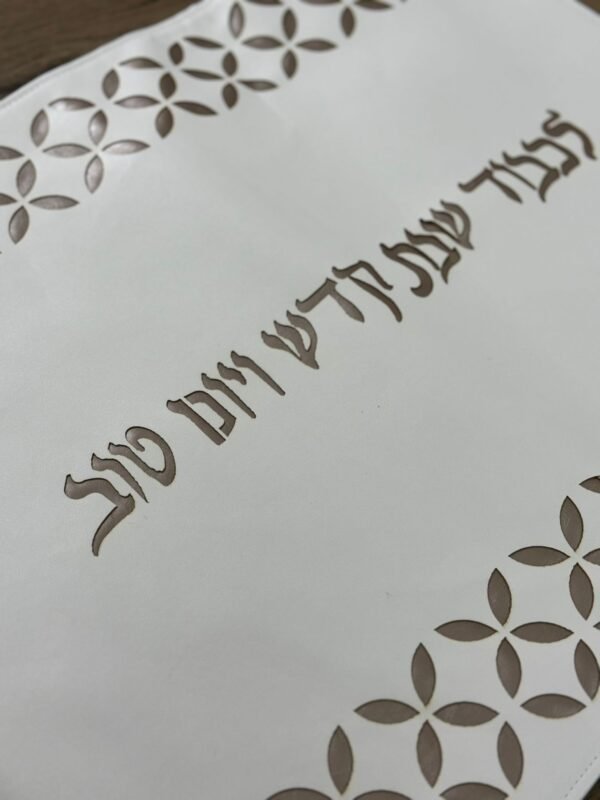 לכבוד שבת קדש ויום טוב